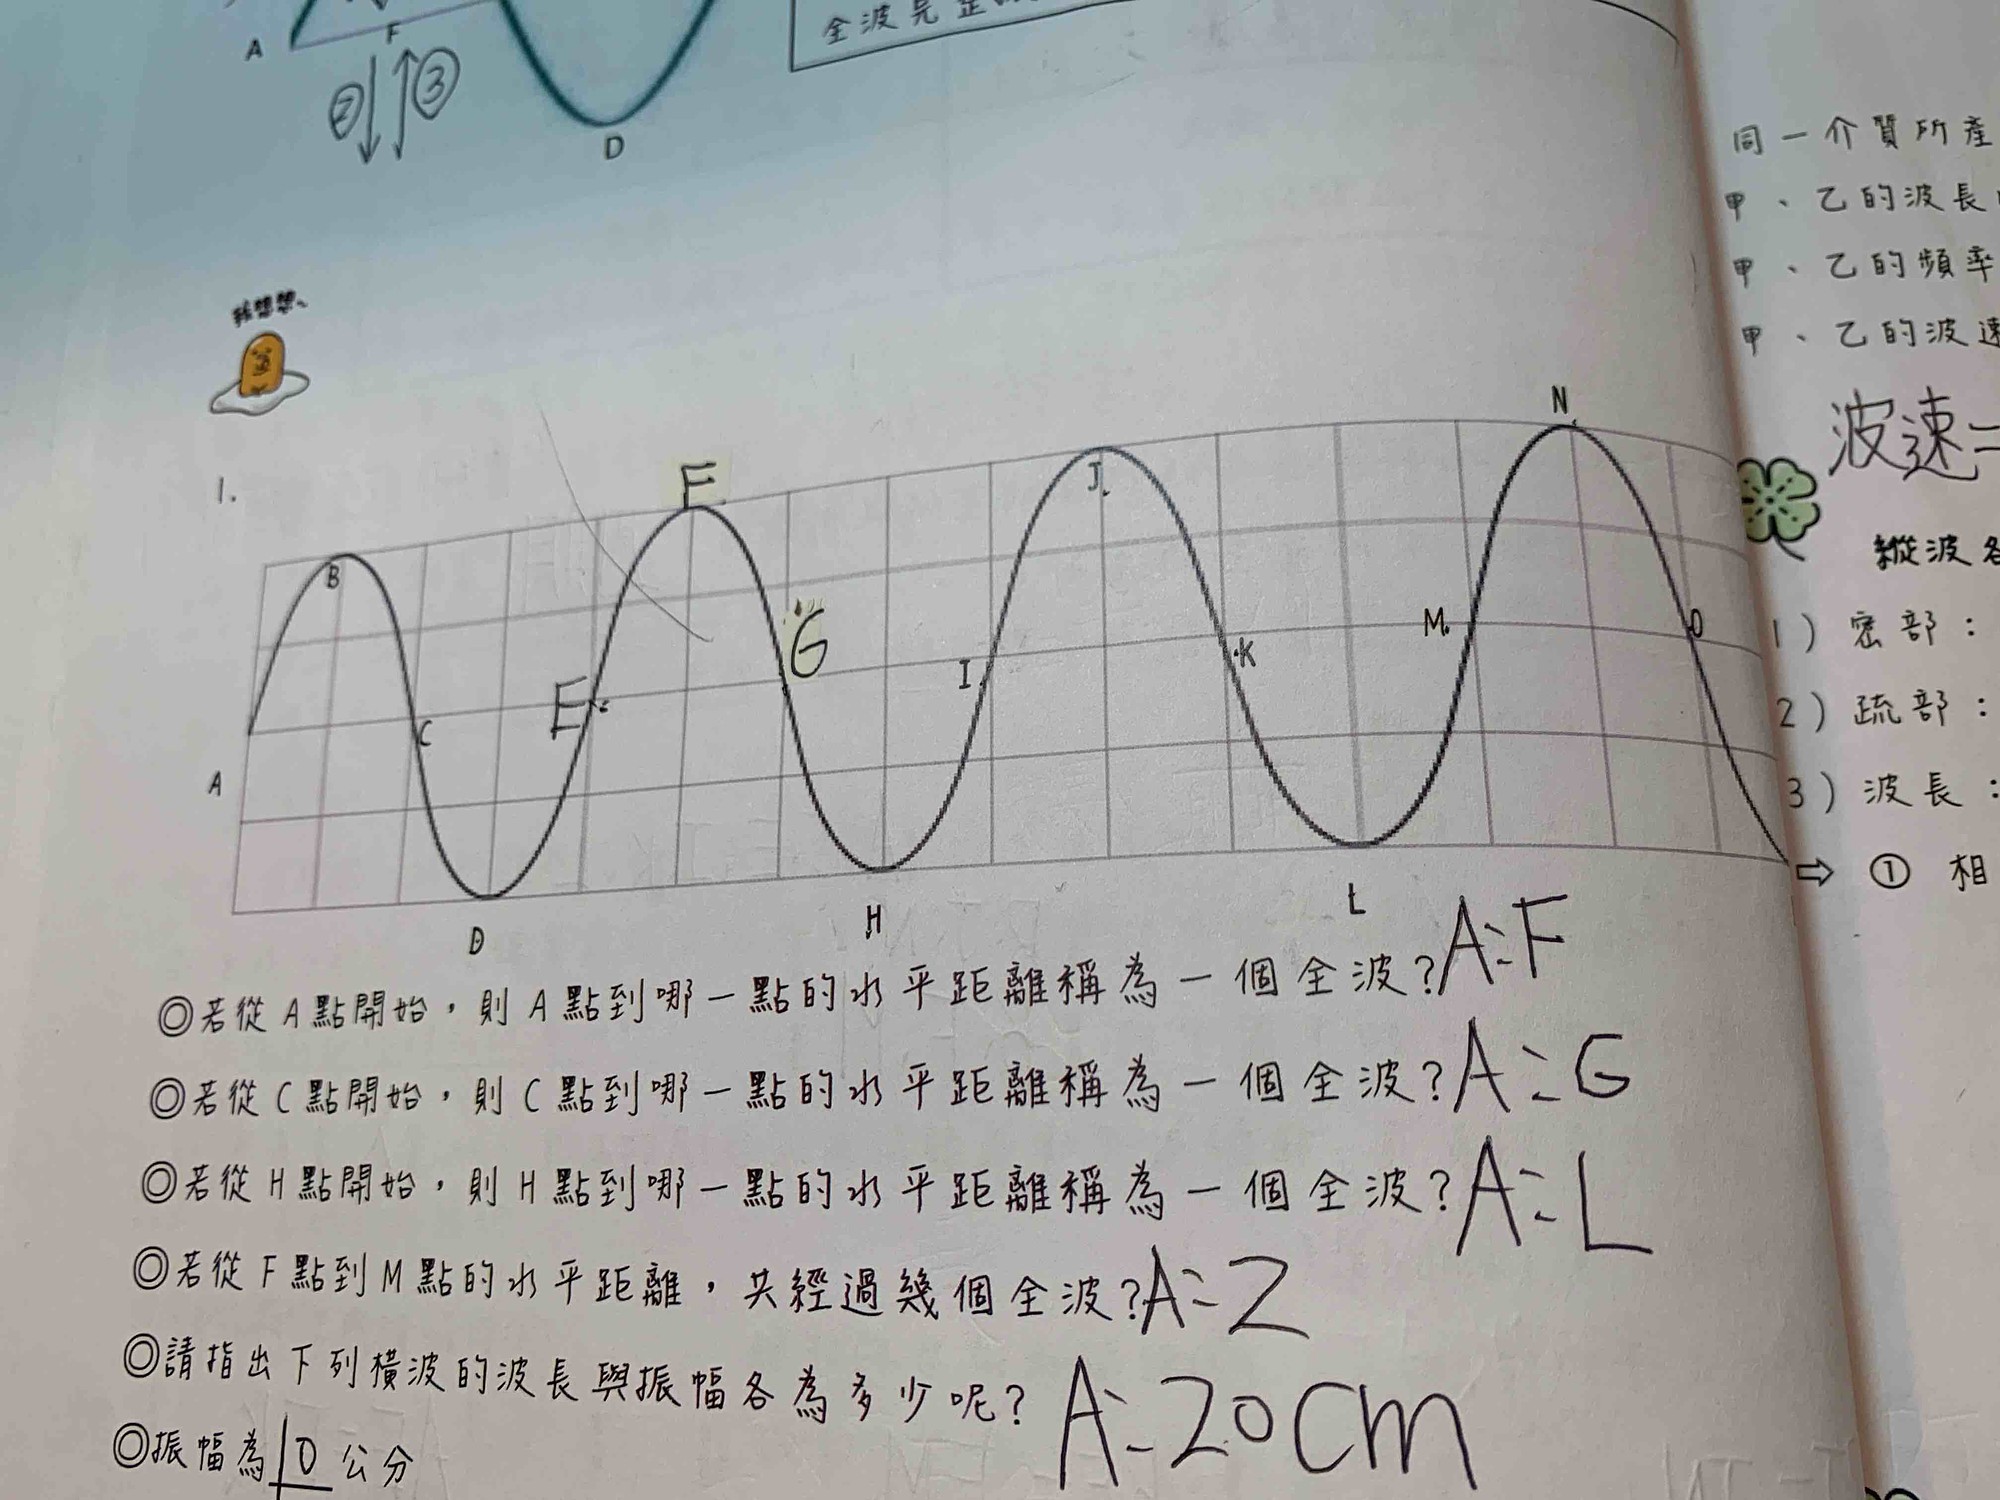 A
F
② ③
D
全波完整
同一介質所產
甲、乙的波長
甲、乙的頻率
甲、乙的波速
波速=
我想想~
1.
A
B
C
D
E
F
G
H
I
J
K
L
M
N
O
縱波各
1) 密部：
2) 疏部：
3) 波長：
⇨ ① 相
◎若從A點開始，則A點到哪一點的水平距離稱為一個全波? A:F
◎若從C點開始，則C點到哪一點的水平距離稱為一個全波? A:G
◎若從H點開始，則H點到哪一點的水平距離稱為一個全波? A:L
◎若從F點到M點的水平距離，共經過幾個全波? A:2
◎請指出下列橫波的波長與振幅各為多少呢? A:20cm
◎振幅為10公分